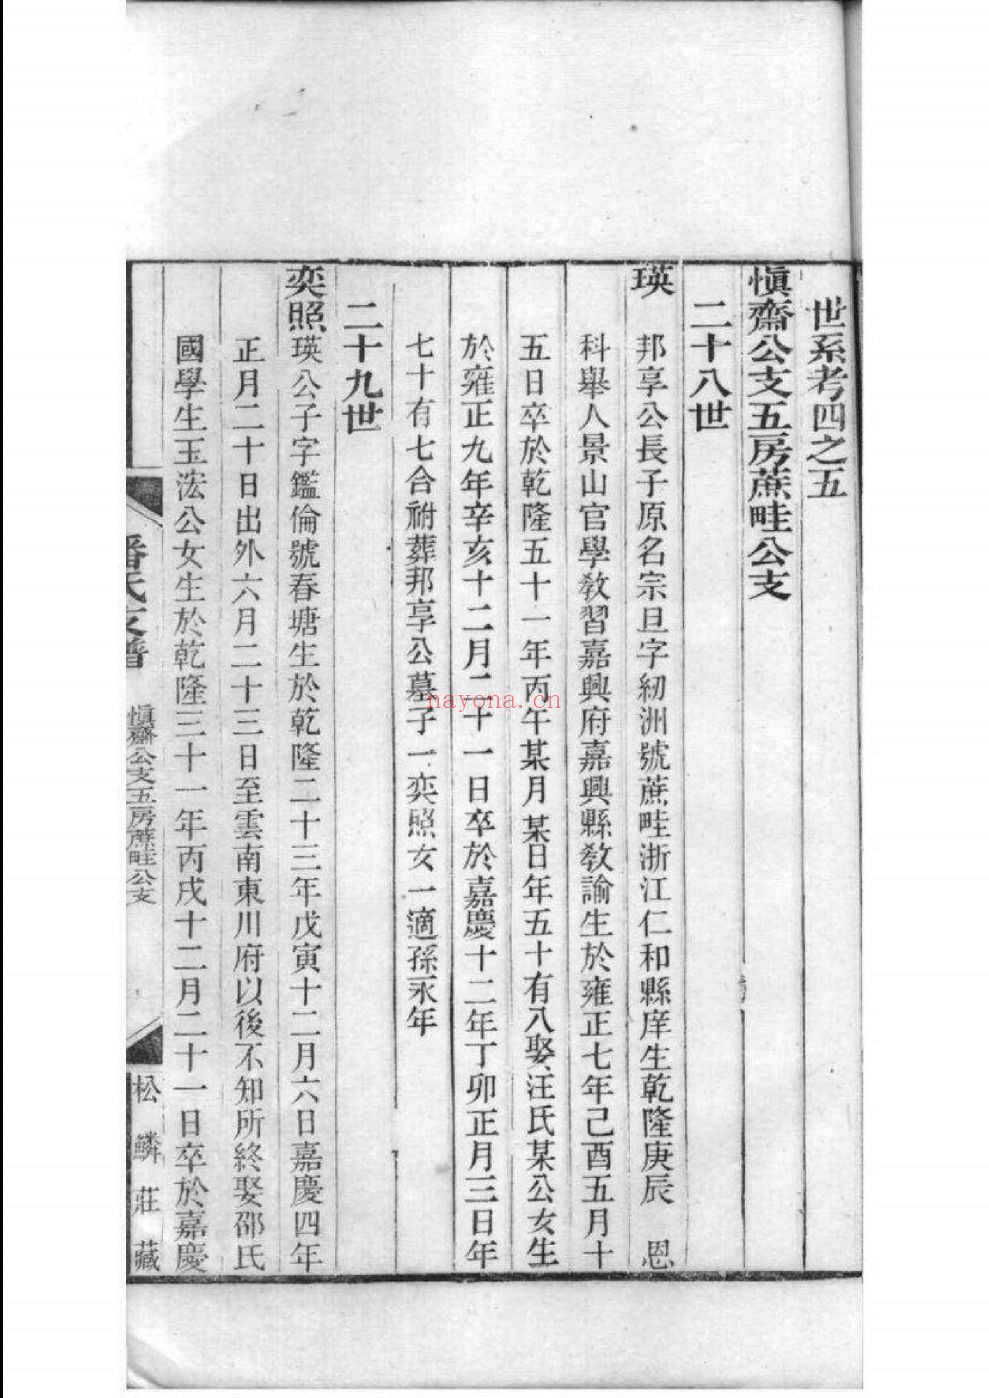 世系考四之五
愼齋公支五房蔗畦公支
二十八世
瑛 邦享公長子原名宗旦字紉洲號蔗畦浙江仁和縣庠生乾隆庚辰 恩
科舉人景山官學敎習嘉興府嘉興縣敎諭生於雍正七年己酉五月十
五日卒於乾隆五十一年丙午某月某日年五十有八娶汪氏某公女生
於雍正九年辛亥十二月二十一日卒於嘉慶十二年丁卯正月三日年
七十有七合祔葬邦享公墓子一奕照女一適孫永年
二十九世
奕照瑛公子字鑑倫號春塘生於乾隆二十三年戊寅十二月六日嘉慶四年
正月二十日出外六月二十三日至雲南東川府以後不知所終娶邵氏
國學生玉浤公女生於乾隆三十一年丙戌十二月二十一日卒於嘉慶
潘氏支譜 愼齋公支五房蔗畦公支 松鱗莊藏
nayona.cn